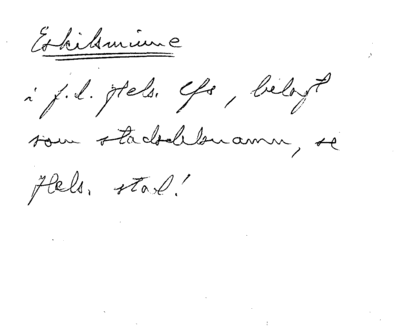 Eskilsminne
i f.d. Hels. lfs, belagt
som stadsdelsnamn, se
Hels. stad!